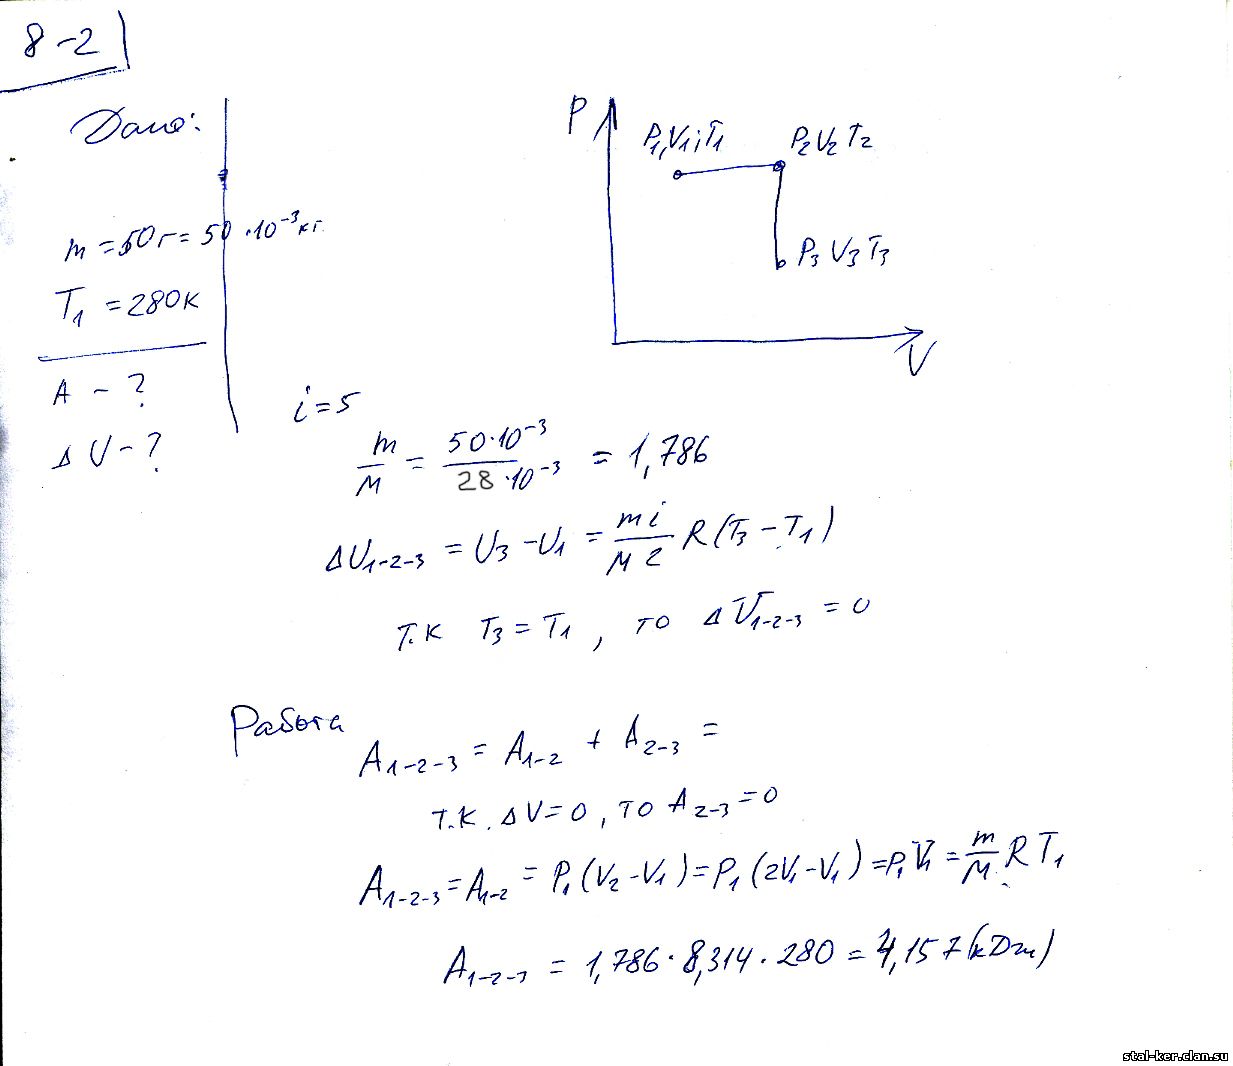 8-2
Дано:
m = 50г = 50 · 10⁻³ кг
T₁ = 280К
A - ?
Δ U - ?
P
P₁,V₁,T₁
P₂ V₂ T₂
P₃ V₃ T₃
V
i = 5
m/M = 50·10⁻³ / 28·10⁻³ = 1,786
ΔU₁₋₂₋₃ = U₃ - U₁ = m i / M 2 R (T₃ - T₁)
т.к T₃ = T₁ , то Δ U₁₋₂₋₃ = 0
Работа
A₁₋₂₋₃ = A₁₋₂ + A₂₋₃ =
т.к. ΔV = 0, то A₂₋₃ = 0
A₁₋₂₋₃ = A₁₋₂ = P₁ (V₂ - V₁) = P₁ (2V₁ - V₁) = P₁ V₁ = m/M R T₁
A₁₋₂₋₃ = 1,786 · 8,314 · 280 = 4,157 (кДж)
stal-ker.clan.su